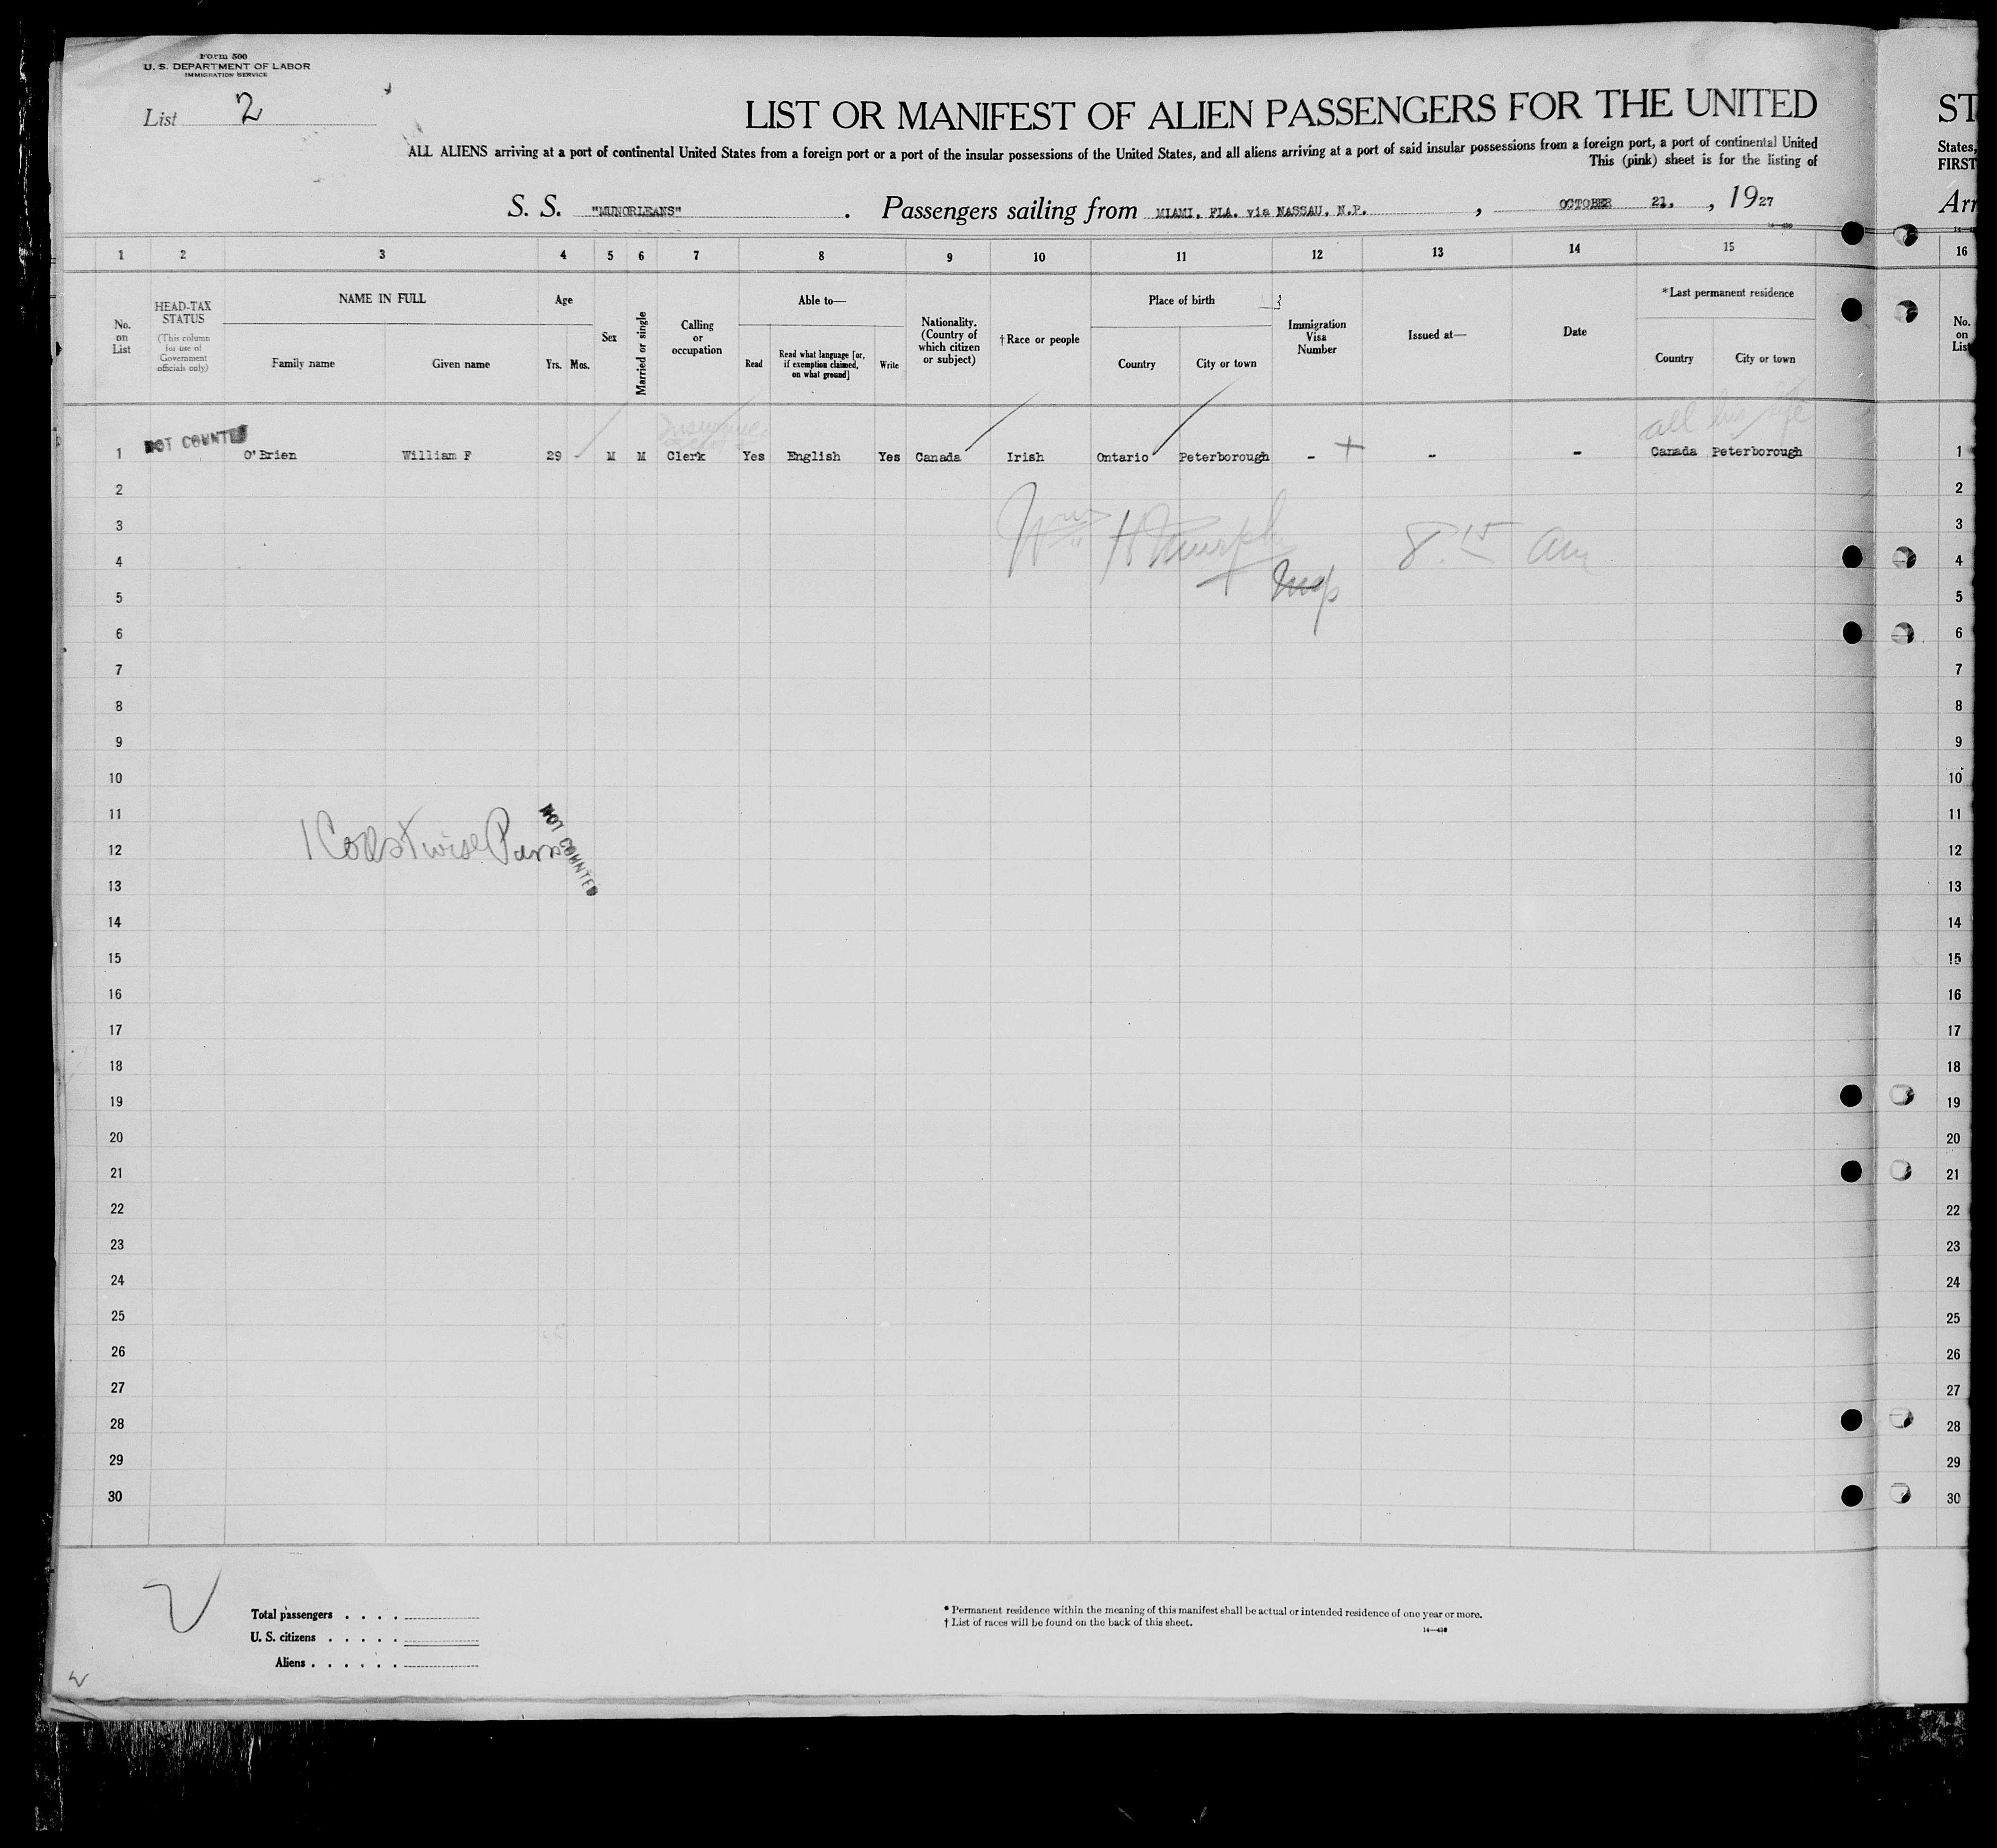 Form 500
U. S. DEPARTMENT OF LABOR
IMMIGRATION SERVICE
List 2
LIST OR MANIFEST OF ALIEN PASSENGERS FOR THE UNITED ST
ALL ALIENS arriving at a port of continental United States from a foreign port or a port of the insular possessions of the United States, and all aliens arriving at a port of said insular possessions from a foreign port, a port of continental United States,
This (pink) sheet is for the listing of FIRST
S. S. "MUNORLEANS" . Passengers sailing from MIAMI, FLA. via NASSAU, N.P. , OCTOBER 21. , 1927 Arr
1 2 3 4 5 6 7 8 9 10 11 12 13 14 15 16
No. on List
HEAD-TAX STATUS
(This column for use of Government officials only)
NAME IN FULL
Family name Given name
Age
Yrs. Mos.
Sex
Married or single
Calling or occupation
Able to—
Read
Read what language [or, if exemption claimed, on what ground]
Write
Nationality. (Country of which citizen or subject)
†Race or people
Place of birth
Country City or town
Immigration Visa Number
Issued at—
Date
*Last permanent residence
Country City or town
No. on List
NOT COUNTED
all his life
1 O'Brien William F 29 M M Clerk Yes English Yes Canada Irish Ontario Peterborough - + - - Canada Peterborough 1
2 2
3 3
Wm H Murphy 8.15 am
4 4
Insp
5 5
6 6
7 7
8 8
9 9
10 10
11 11
1 Coastwise Pass
NOT COUNTED
12 12
13 13
14 14
15 15
16 16
17 17
18 18
19 19
20 20
21 21
22 22
23 23
24 24
25 25
26 26
27 27
28 28
29 29
30 30
Total passengers . . . .
U. S. citizens . . . . .
Aliens . . . . . .
* Permanent residence within the meaning of this manifest shall be actual or intended residence of one year or more.
† List of races will be found on the back of this sheet.
14—430